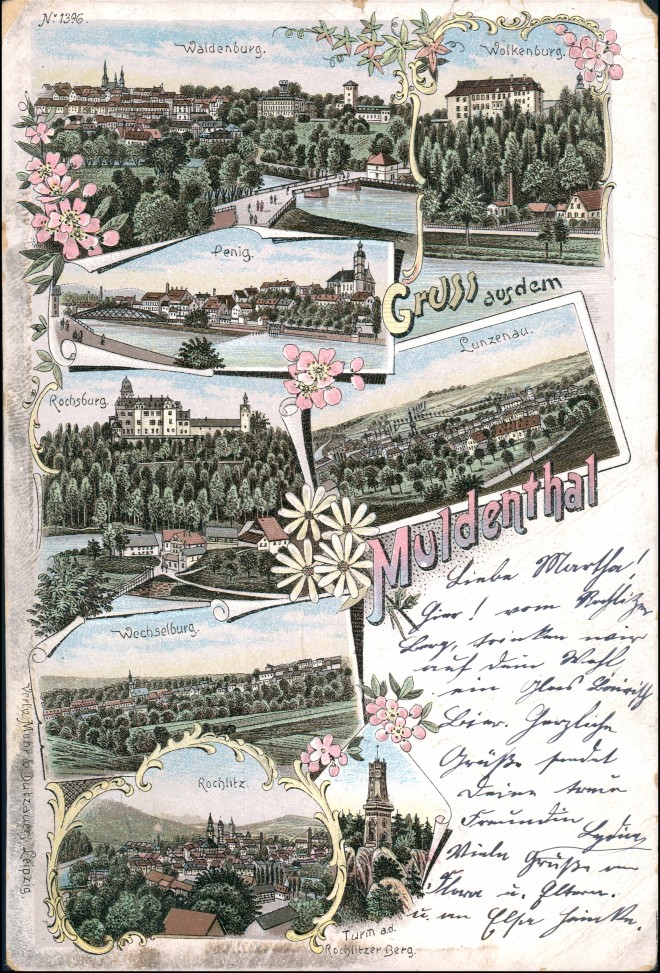 No 1396
Waldenburg.
Wolkenburg.
Penig.
Gruss aus dem
Lunzenau.
Rochsburg.
Muldenthal
Liebe Martha!
Hier! vom Rochlitzer
Berg, trinken wir
auf dein Wohl
ein Glas Bairisch
Bier. Herzliche
Grüße sendet
Deine treue
Freundin
Lydia
Viele Grüße an
Flora u. Eltern.
u. an Elsa
Wechselburg.
Rochlitz.
Turm a.d.
Rochlitzer Berg.
Verlag Leipzig.